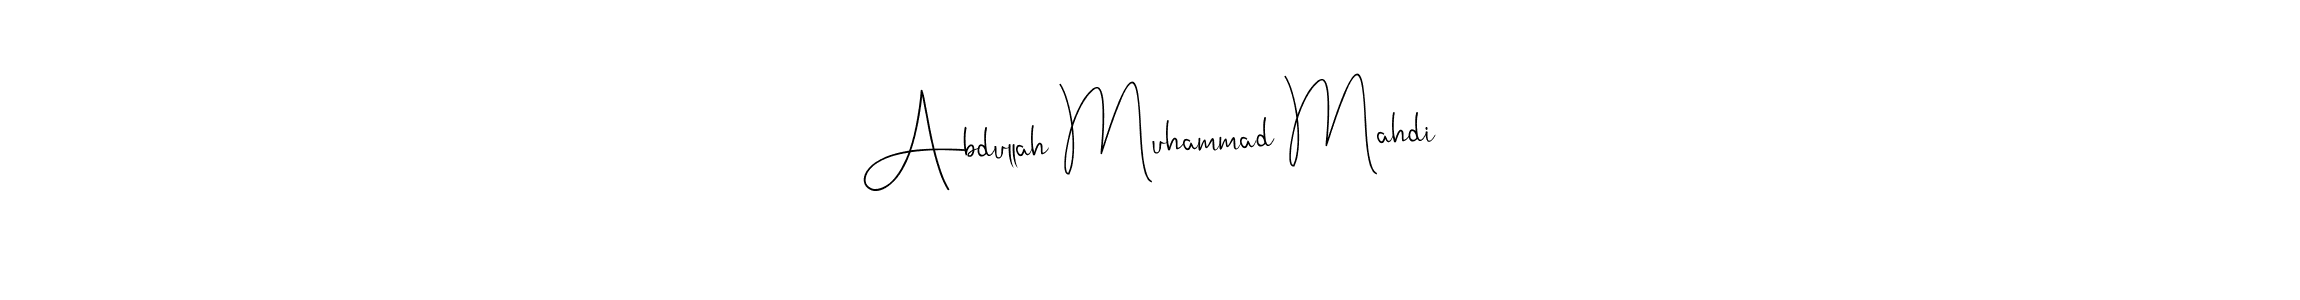 Abdullah Muhammad Mahdi